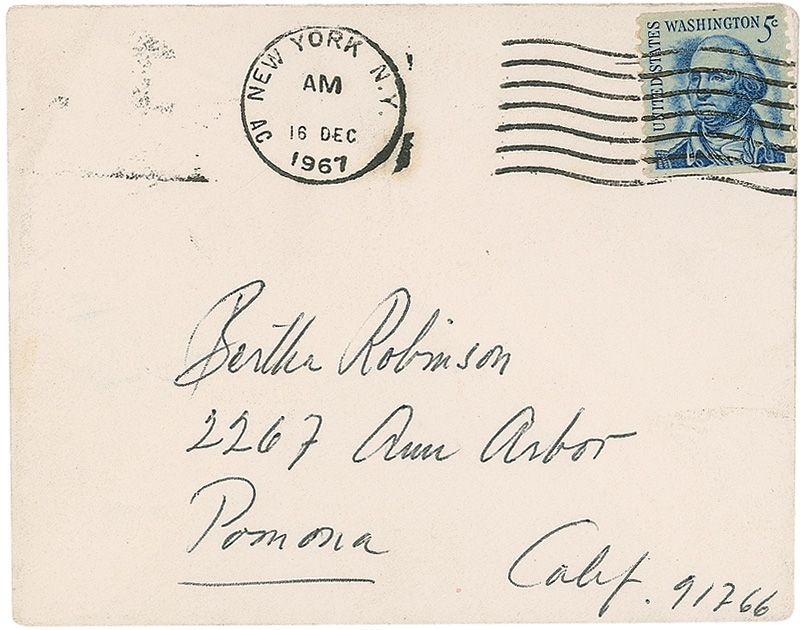 NEW YORK N.Y.
AC
AM
16 DEC
1967
UNITED STATES
WASHINGTON 5c
Bertha Robinson
2267 Ann Arbor
Pomona
Calif. 91766